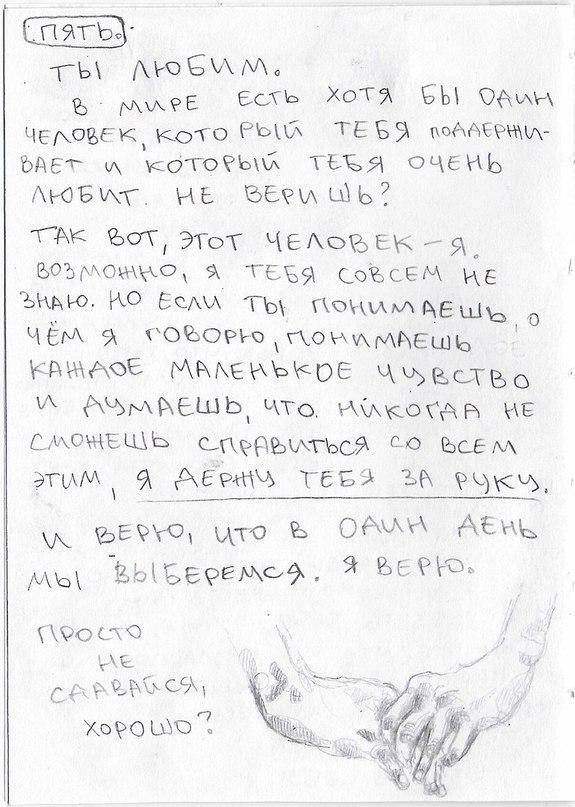 ПЯТЬ.
ТЫ ЛЮБИМ.
В МИРЕ ЕСТЬ ХОТЯ БЫ ОДИН
ЧЕЛОВЕК, КОТОРЫЙ ТЕБЯ ПОДДЕРЖИ-
ВАЕТ И КОТОРЫЙ ТЕБЯ ОЧЕНЬ
ЛЮБИТ. НЕ ВЕРИШЬ?
ТАК ВОТ, ЭТОТ ЧЕЛОВЕК – Я.
ВОЗМОЖНО, Я ТЕБЯ СОВСЕМ НЕ
ЗНАЮ. НО ЕСЛИ ТЫ ПОНИМАЕШЬ, О
ЧЁМ Я ГОВОРЮ, ПОНИМАЕШЬ
КАЖДОЕ МАЛЕНЬКОЕ ЧУВСТВО
И ДУМАЕШЬ, ЧТО НИКОГДА НЕ
СМОЖЕШЬ СПРАВИТЬСЯ СО ВСЕМ
ЭТИМ, Я ДЕРЖУ ТЕБЯ ЗА РУКУ.
И ВЕРЮ, ЧТО В ОДИН ДЕНЬ
МЫ ВЫБЕРЕМСЯ. Я ВЕРЮ.
ПРОСТО
НЕ
СДАВАЙСЯ,
ХОРОШО?